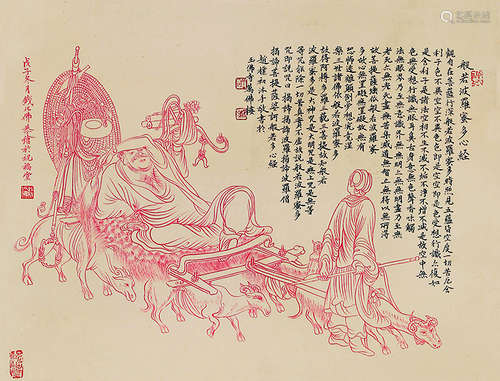 般若波羅蜜多心經
觀自在菩薩行深般若波羅蜜多時照見五蘊皆空度一切苦厄舍
利子色不異空空不異色色即是空空即是色受想行識亦復如
是舍利子是諸法空相不生不滅不垢不淨不增不減是故空中無
色無受想行識無眼耳鼻舌身意無色聲香味觸
法無眼界乃至無意識界無無明亦無無明盡乃至無
老死亦無老死盡無苦集滅道無智亦無得以無所得
故菩提薩埵依般若波羅蜜
多故心無罣礙無罣礙故無有
恐怖遠離顛倒夢想究竟涅
槃三世諸佛依般若波羅蜜多
故得阿耨多羅三藐三菩提故知般若
波羅蜜多是大神咒是大明咒是無上咒是無等
等咒能除一切苦真實不虛故說般若波羅蜜多
咒即說咒曰揭諦揭諦波羅揭諦波羅僧
揭諦菩提薩婆訶般若多心經
趙樸初沐手敬書於
玉佛寺樓
戊子冬月錢佛恭繪於祝福堂